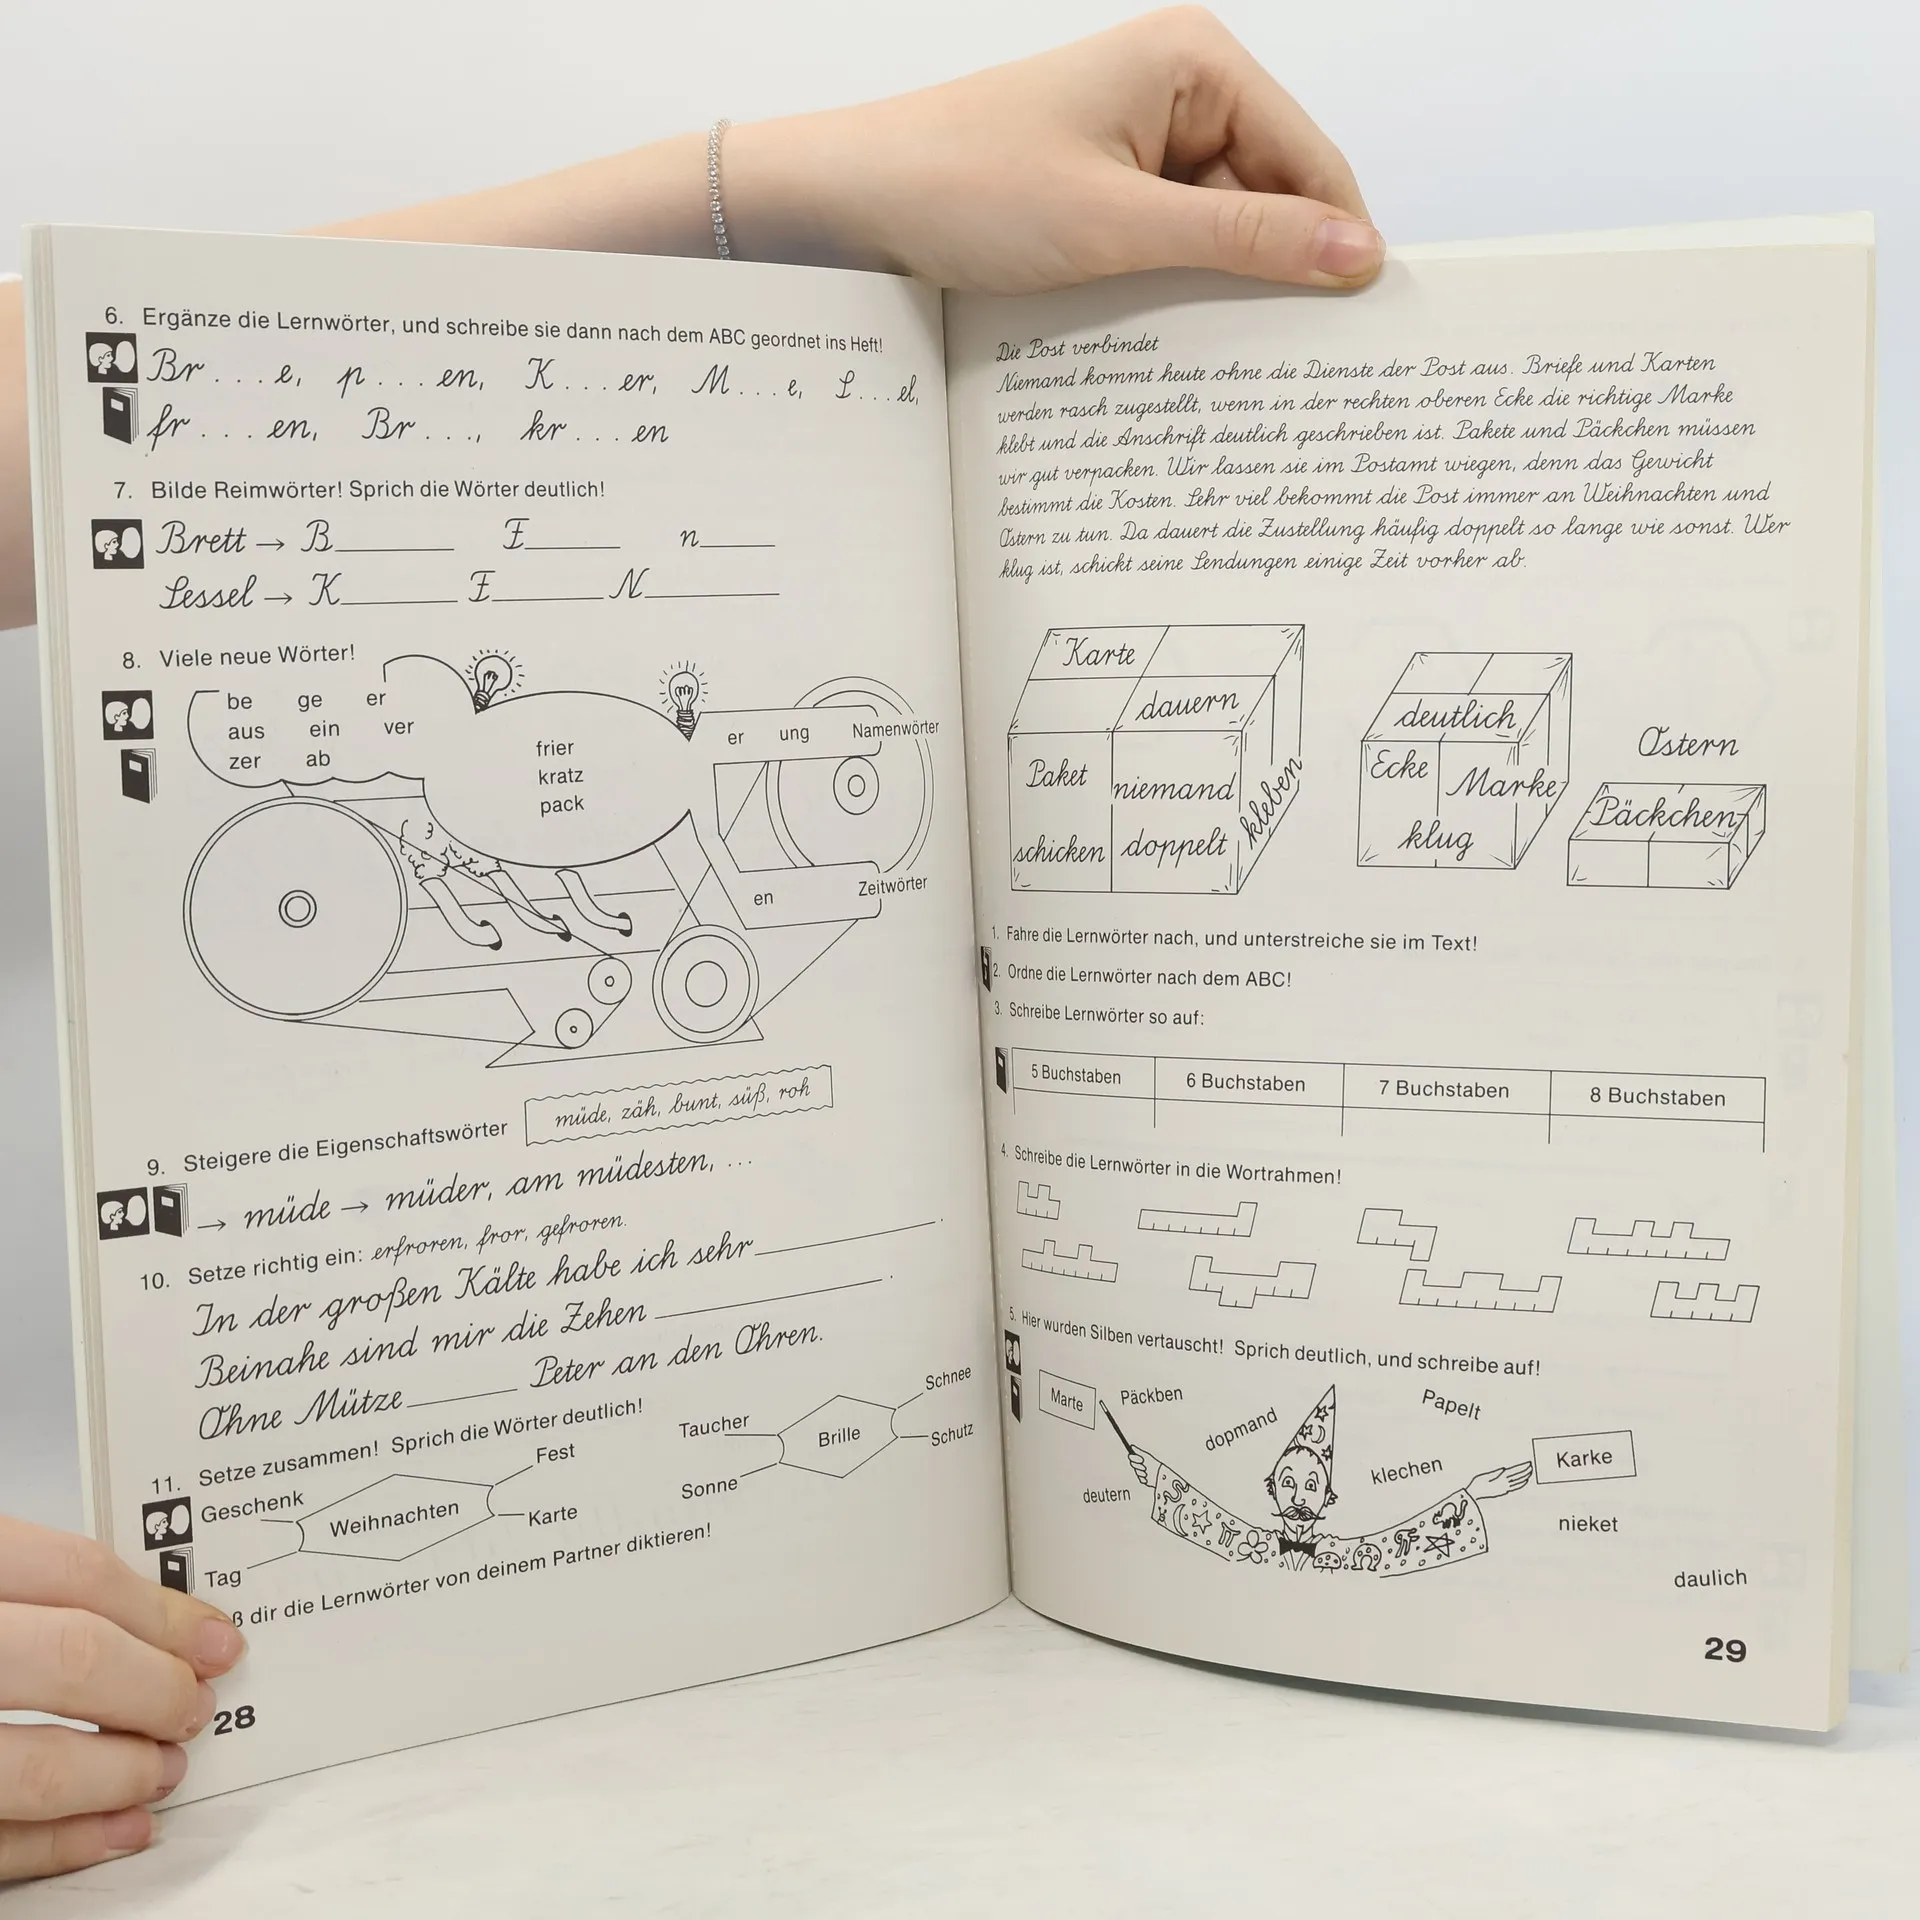 6. Ergänze die Lernwörter, und schreibe sie dann nach dem ABC geordnet ins Heft!
Br . . . e, p . . . en, K . . . er, M . . . e, S . . . el,
fr . . . en, Br . . ., kr . . . en
7. Bilde Reimwörter! Sprich die Wörter deutlich!
Brett → B________ F________ n______
Sessel → K________ F________ N________
8. Viele neue Wörter!
be ge er
aus ein ver
zer ab
frier
kratz
pack
er ung Namenwörter
en Zeitwörter
müde, zäh, bunt, süß, roh
9. Steigere die Eigenschaftswörter
→ müde → müder, am müdesten, ...
10. Setze richtig ein: erfroren, fror, gefroren.
In der großen Kälte habe ich sehr ________.
Beinahe sind mir die Zehen ________.
Ohne Mütze ______ Peter an den Ohren.
11. Setze zusammen! Sprich die Wörter deutlich!
Geschenk
Fest
Weihnachten
Karte
Tag
Taucher
Schnee
Brille
Schutz
Sonne
ß dir die Lernwörter von deinem Partner diktieren!
28
Die Post verbindet
Niemand kommt heute ohne die Dienste der Post aus. Briefe und Karten
werden rasch zugestellt, wenn in der rechten oberen Ecke die richtige Marke
klebt und die Anschrift deutlich geschrieben ist. Pakete und Päckchen müssen
wir gut verpacken. Wir lassen sie im Postamt wiegen, denn das Gewicht
bestimmt die Kosten. Sehr viel bekommt die Post immer an Weihnachten und
Ostern zu tun. Da dauert die Zustellung häufig doppelt so lange wie sonst. Wer
klug ist, schickt seine Sendungen einige Zeit vorher ab.
Karte
dauern
Paket
niemand
kleben
schicken
doppelt
deutlich
Ecke
Marke
klug
Ostern
Päckchen
1. Fahre die Lernwörter nach, und unterstreiche sie im Text!
2. Ordne die Lernwörter nach dem ABC!
3. Schreibe Lernwörter so auf:
5 Buchstaben 6 Buchstaben 7 Buchstaben 8 Buchstaben
4. Schreibe die Lernwörter in die Wortrahmen!
5. Hier wurden Silben vertauscht! Sprich deutlich, und schreibe auf!
Marte
Päckben
dopmand
Papelt
deutern
klechen
Karke
nieket
daulich
29